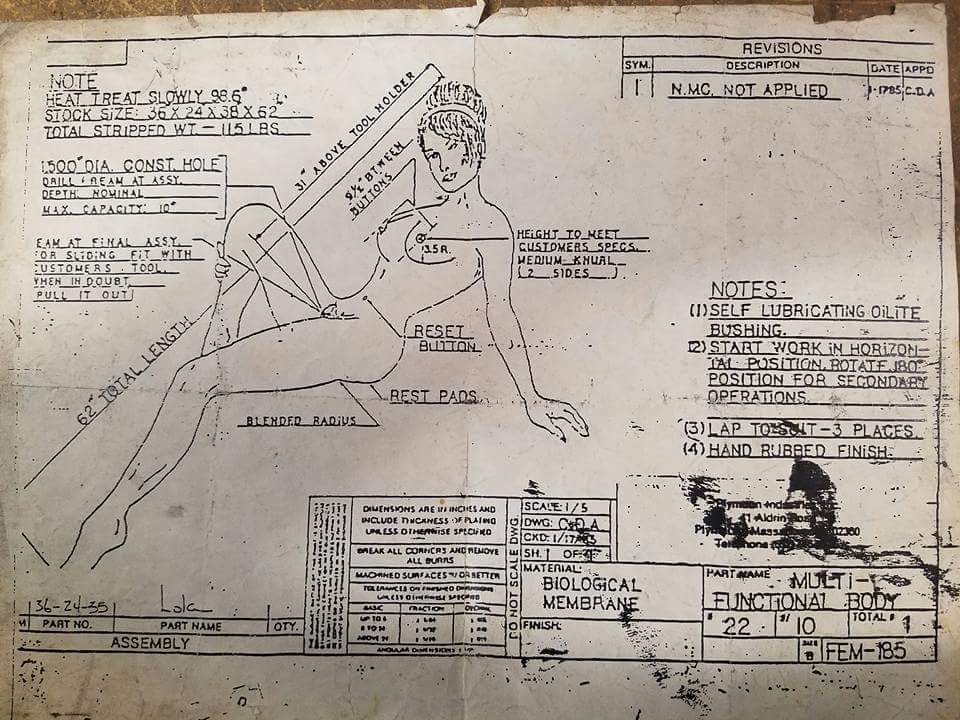 REVISIONS
SYM. DESCRIPTION DATE APPD
1 N.M.C. NOT APPLIED 1-1785 C.D.A
NOTE
HEAT TREAT SLOWLY 98.6°
STOCK SIZE: 36 X 24 X 38 X 62"
TOTAL STRIPPED WT - 115 LBS
1.500" DIA. CONST HOLE
DRILL & REAM AT ASSY.
DEPTH NOMINAL
MAX. CAPACITY: 10"
EAM AT FINAL ASSY.
OR SLIDING FIT WITH
USTOMERS TOOL.
WHEN IN DOUBT,
PULL IT OUT
31" ABOVE TOOL HOLDER
9½" BTWEEN
BUTTONS
3.5 R.
HEIGHT TO MEET
CUSTOMERS SPECS.
MEDIUM KNURL
(2 SIDES)
62" TOTAL LENGTH
RESET
BUTTON
REST PADS
BLENDED RADIUS
NOTES:
(1) SELF LUBRICATING OILITE
BUSHING.
(2) START WORK IN HORIZON-
TAL POSITION. ROTATE 180°
POSITION FOR SECONDARY
OPERATIONS.
(3) LAP TO SUIT - 3 PLACES.
(4) HAND RUBBED FINISH.
Plymouth
Aldrin
Plym Mass 02360
Telephone
DIMENSIONS ARE IN INCHES AND
INCLUDE THICKNESS OF PLATING
UNLESS OTHERWISE SPECIFIED
BREAK ALL CORNERS AND REMOVE
ALL BURRS
MACHINED SURFACES OR BETTER
TOLERANCES ON FINISHED DIMENSIONS
UNLESS OTHERWISE SPECIFIED
BASIC FRACTION DECIMAL
UP TO 6
ABOVE 24
ANGULAR DIMENSIONS
DO NOT SCALE DWG.
SCALE: 1/5
DWG: C.D.A
CKD: 1/17/85
SH. 1 OF
MATERIAL:
BIOLOGICAL
MEMBRANE
FINISH:
PART NAME MULTI-
FUNCTIONAL BODY
# 22 10 TOTAL # 1
SIZE B FEM-185
36-24-35 Lola
PART NO. PART NAME QTY.
ASSEMBLY